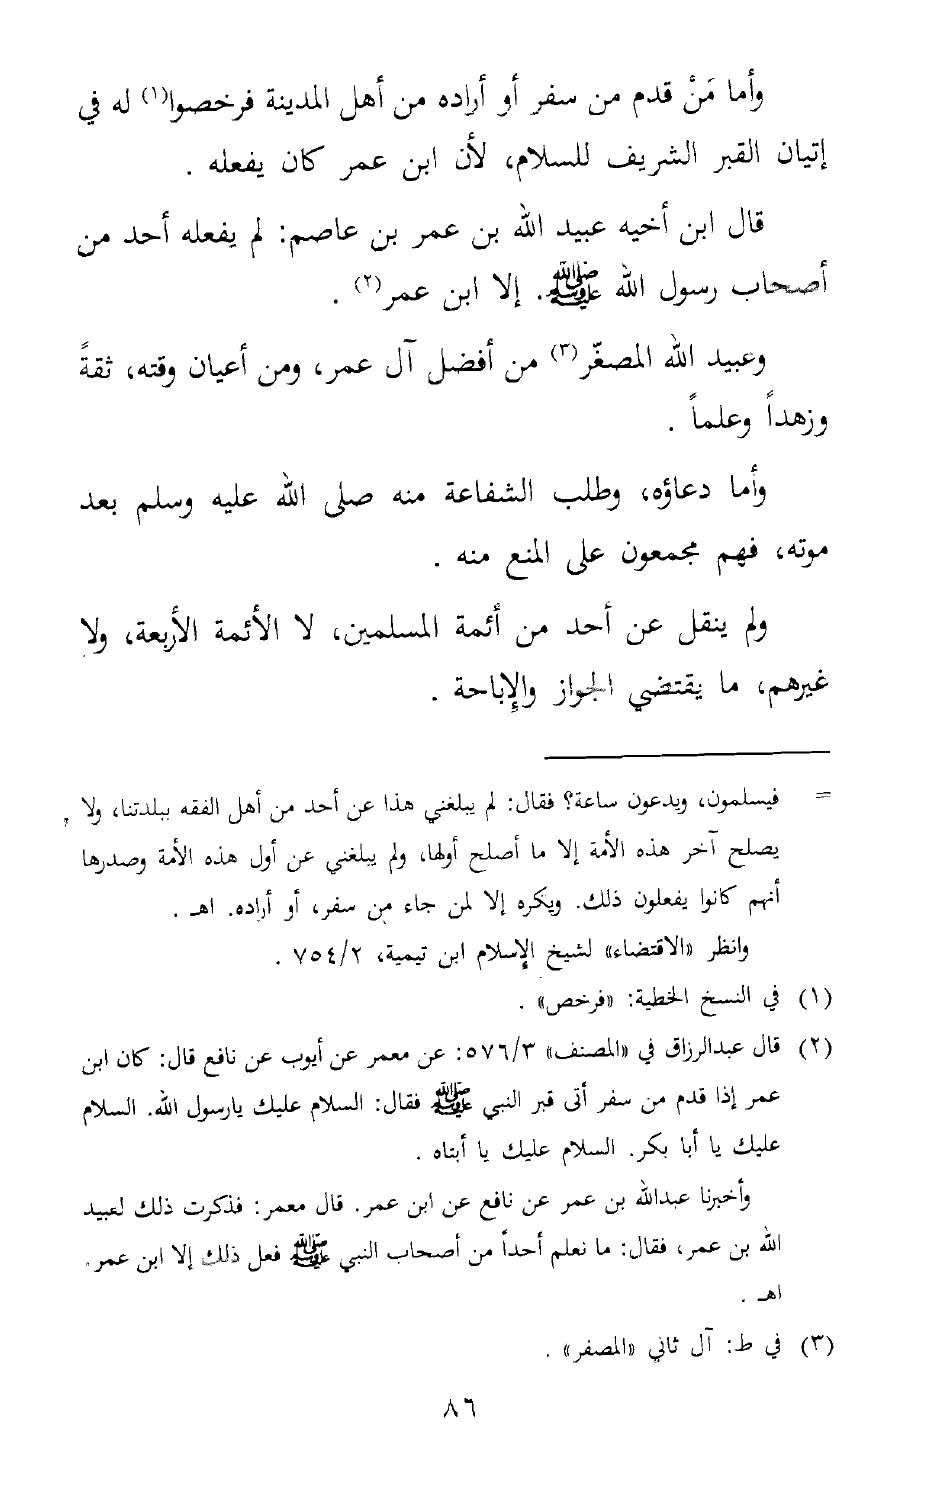 وأما مَنْ قدم من سفر أو أراده من أهل المدينة فرخصوا(١) له في
إتيان القبر الشريف للسلام، لأن ابن عمر كان يفعله .
قال ابن أخيه عبيد الله بن عمر بن عاصم: لم يفعله أحد من
أصحاب رسول الله ﷺ. إلا ابن عمر(٢) .
وعبيد الله المصغّر(٣) من أفضل آل عمر، ومن أعيان وقته، ثقةً
وزهداً وعلماً .
وأما دعاؤه، وطلب الشفاعة منه صلى الله عليه وسلم بعد
موته، فهم مجمعون على المنع منه .
ولم ينقل عن أحد من أئمة المسلمين، لا الأئمة الأربعة، ولا
غيرهم، ما يقتضي الجواز والإباحة .
= فيسلمون، ويدعون ساعة؟ فقال: لم يبلغني هذا عن أحد من أهل الفقه ببلدتنا، ولا
يصلح آخر هذه الأمة إلا ما أصلح أولها، ولم يبلغني عن أول هذه الأمة وصدرها
أنهم كانوا يفعلون ذلك. ويكره إلا لمن جاء من سفر، أو أراده. اهـ .
وانظر «الاقتضاء» لشيخ الإسلام ابن تيمية، ٧٥٤/٢ .
(١) في النسخ الخطية: «فرخص» .
(٢) قال عبدالرزاق في «المصنف» ٥٧٦/٣: عن معمر عن أيوب عن نافع قال: كان ابن
عمر إذا قدم من سفر أتى قبر النبي ﷺ فقال: السلام عليك يارسول الله. السلام
عليك يا أبا بكر. السلام عليك يا أبتاه .
وأخبرنا عبدالله بن عمر عن نافع عن ابن عمر. قال معمر: فذكرت ذلك لعبيد
الله بن عمر، فقال: ما نعلم أحداً من أصحاب النبي ﷺ فعل ذلك إلا ابن عمر.
اهـ .
(٣) في ط: آل ثاني «المصفر» .
٨٦